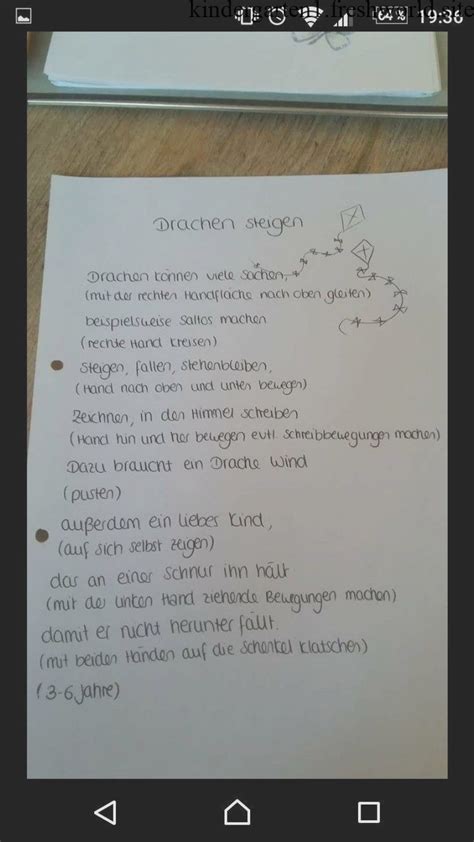 kindergarten.freshworld.site
64% 19:36
Drachen steigen
Drachen können viele Sachen,
(mit der rechten Handfläche nach oben gleiten)
beispielsweise Saltos machen
(rechte Hand kreisen)
steigen, fallen, stehenbleiben,
(Hand nach oben und unten bewegen)
Zeichnen, in den Himmel schreiben
(Hand hin und her bewegen evtl. Schreibbewegungen machen)
Dazu braucht ein Drache Wind
(pusten)
außerdem ein liebes Kind,
(auf sich selbst zeigen)
das an einer Schnur ihn hält
(mit der unten Hand ziehende Bewegungen machen)
damit er nicht herunter fällt.
(mit beiden Händen auf die Schenkel klatschen)
(3-6 Jahre)